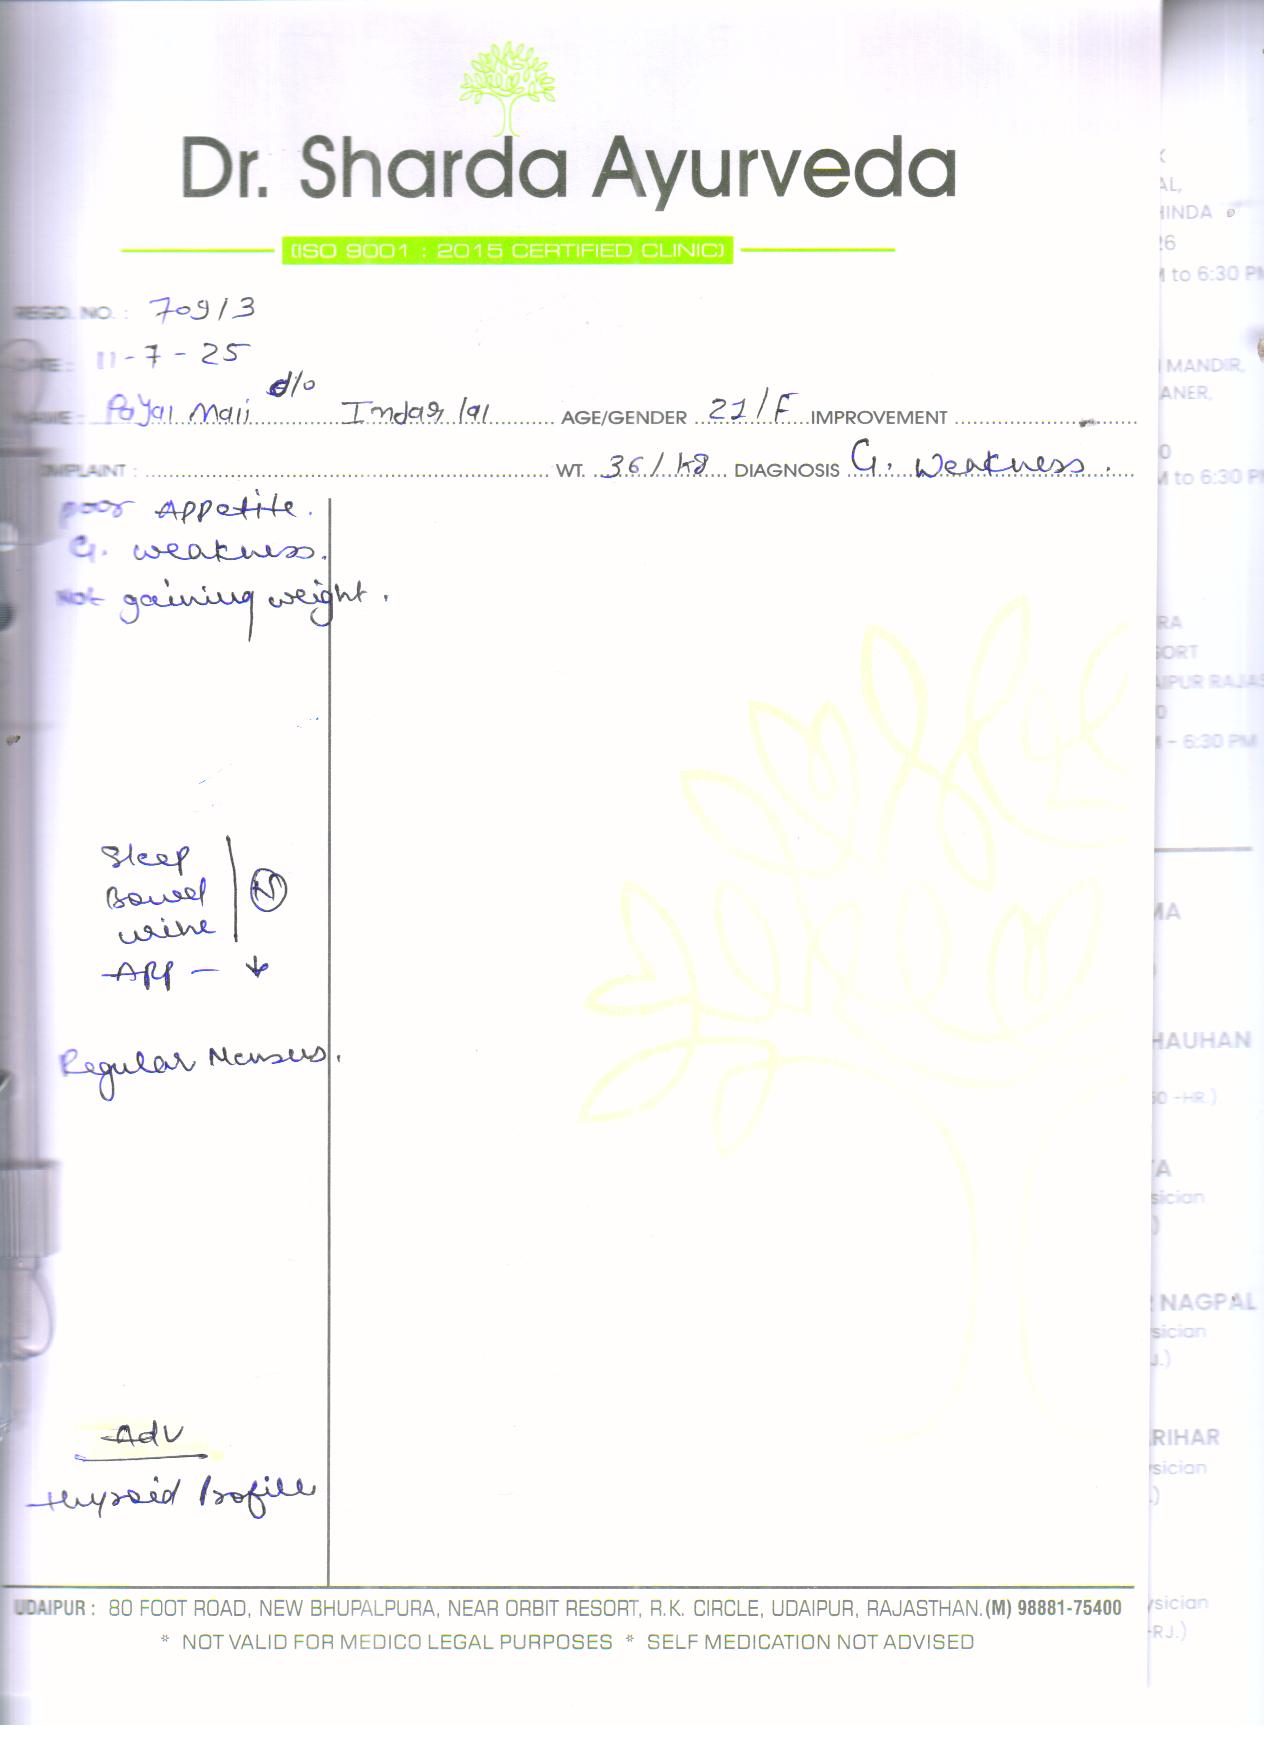 Dr. Sharda Ayurveda
(ISO 9001 : 2015 CERTIFIED CLINIC)
REGD. NO. : 709/3
DATE : 11-7-25
NAME : Payal Mali d/o Indar lal AGE/GENDER 21/F IMPROVEMENT
COMPLAINT : WT. 36/kg DIAGNOSIS G. Weakness.
poor Appetite.
G. weakness.
Not gaining weight.
Sleep
Bowel
urine
N
App - ↓
Regular Menses.
Adv
Thyroid Profile
UDAIPUR : 80 FOOT ROAD, NEW BHUPALPURA, NEAR ORBIT RESORT, R.K. CIRCLE, UDAIPUR, RAJASTHAN. (M) 98881-75400
* NOT VALID FOR MEDICO LEGAL PURPOSES * SELF MEDICATION NOT ADVISED
AL,
HINDA
26
to 6:30 PM
MANDIR,
ANER,
to 6:30 PM
RA
SORT
AIPUR RAJAS
- 6:30 PM
MA
HAUHAN
-HR.)
TA
sician
NAGPAL
sician
J.)
RIHAR
sician
sician
-RJ.)